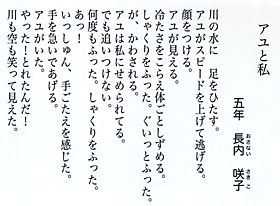 アユと私
五年　長内　咲子
おさない　さきこ
川の水に　足をひたす。
アユがスピードを上げて逃げる。
顔をつける。
アユが見える。
冷たさをこらえ体ごとしずめる。
しゃくりをふった。ぐいっとふった。
が、かわされる。
アユは私にせめられてる。
でも追いつけない。
何度もふった。しゃくりをふった。
あっ！
いっしゅん、手ごたえを感じた。
手を急いであげる。
アユがいた。
やった！とれたんだ！
川も空も笑って見えた。